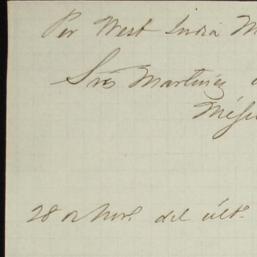 Per West India M
Sres Martinez
Méji
28 de Nov. del últ.